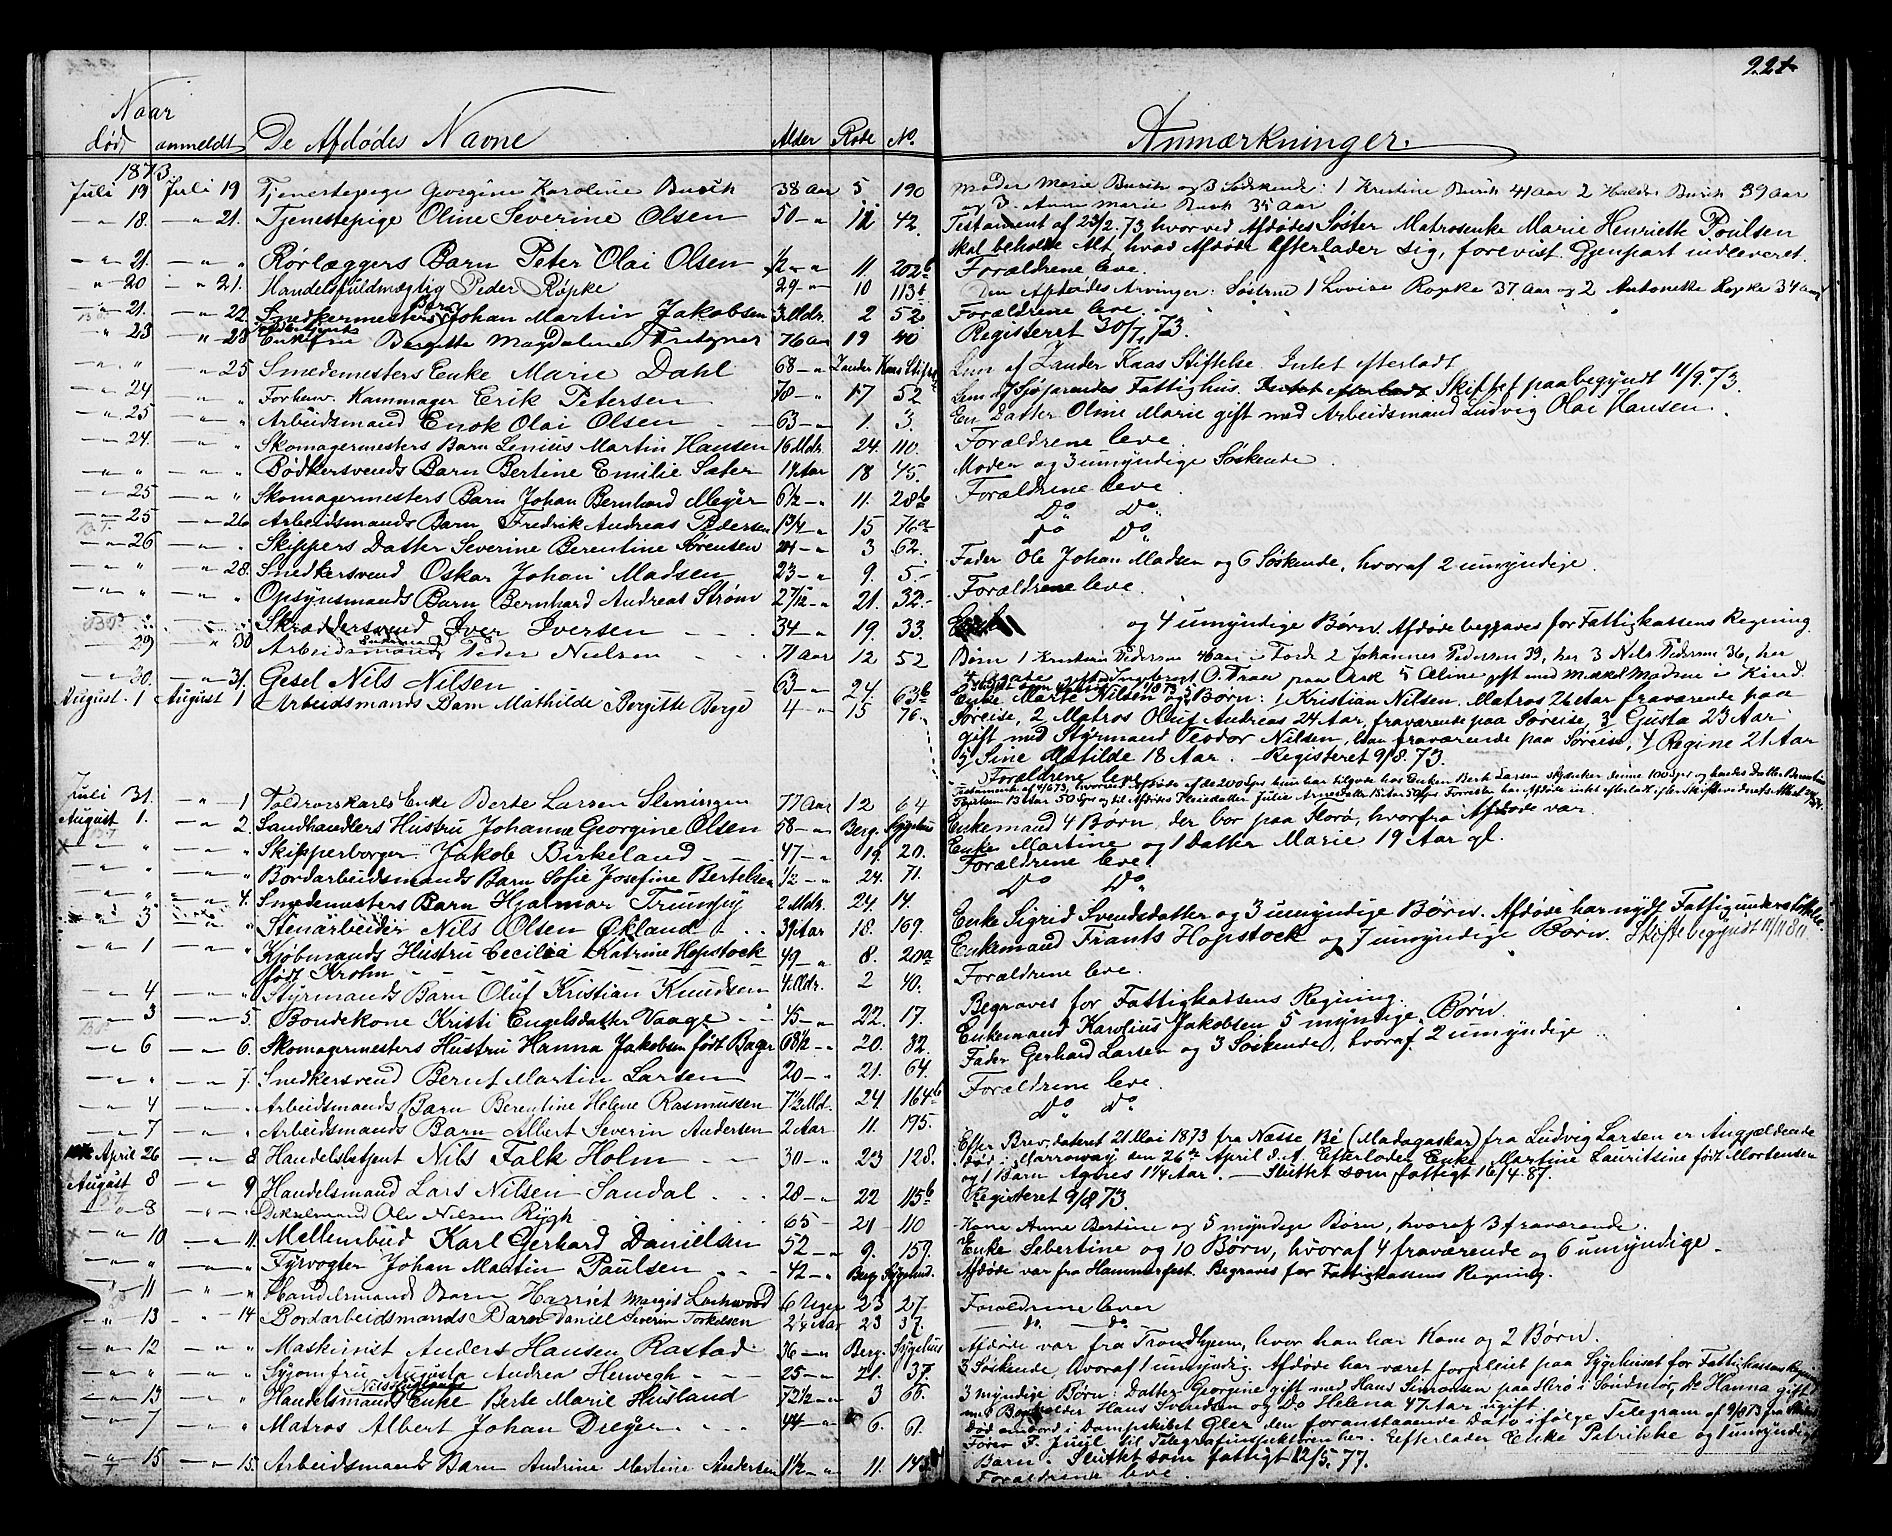 224
Naar
død anmeldt De Afdødes Navne Alder Rode No. Anmærkninger.
1873.
Juli 19 Juli 19 Tjenestepige Georgine Karoline Busch 38 Aar 5 190 Moder Marie Busch og 3 Sødskende: 1 Kristine Busch 41 Aar 2 Busch 39 Aar
og 3. Anne Marie Busch 35 Aar
" 18. " 21. Tjenestepige Oline Severine Olsen 50 " 12 42. Testament af 25/2.73, hvorved Afdødes Søster Matrosenke Marie Henriette Poulsen
skal beholde Alt, hvad Afdøde Efterlader sig, forevist. Gjenpart indleveret.
" 21. " " Rørlæggers Barn Peter Olai Olsen 1/2 " 11. 202b Forældrene leve.
" 20 " 21. Handelsfuldmægtig Peder Röpke 29 " 10 113 Den Afdødes Arvinger: Søstrene 1 Lovise Röpke 37 Aar og 2 Antonette Röpke 34 Aar
" 21. " 22. Snedkermesters Barn Johan Martin Jakobsen 3 Mdr. 2 52 Forældrene leve.
" 23 " 23 Enkefru Bergitte Magdalene 76 Aar 19 40 Registeret 30/7.73.
" " " 25 Smedemesters Enke Marie Dahl 68 " Zander Kaas Stiftelse Lem af Zander Kaas Stiftelse Intet efterladt
" 24 " " Forhenv. Kammager Erik Petersen 78 " 17 52 Lem af Søfarendes Fattighus. Intet efterladt Skiftet paabegyndt 11/9.73.
" 25 " " Arbeidsmand Enok Olai Olsen 63 " 1. 3. En Datter Oline Marie gift med Arbeidsmand Ludvig Olai Hansen.
" 24. " " Skomagermesters Barn Martin Hansen 16 Mdr. 24. 110. Forældrene leve.
" " " " Bødkersvends Barn Bertine Emilie Sæter 14 Aar 18 45. Moder og 3 umyndige Søskende.
" 25 " " Skomagermesters Barn Johan Bernhard Meyer 6 1/2 " 11. 28b Forældrene leve.
" 25 " 26 Arbeidsmands Barn Fredrik Andreas Pedersen 1 3/4 " 15 76a Do Do
" 26 " " Skippers Datter Severine Berentine Sørensen 24 " 3 62. Do Do
" " " 28. Snedkersvend Oskar Johan Madsen 23 " 9. 5. Fader Ole Johan Madsen og 6 Søskende, hvoraf 2 umyndige.
" " " " Opsynsmands Barn Bernhard Andreas Strøm 2 7/12 " 21. 32. Forældrene leve.
" " " " Skræddersvend Iver Iversen 34 " 19. 33. og 4 umyndige Børn. Afdøde begraves for Fattigkassens Regning.
" 29 " 30 Arbeidsmand Peder Nielsen 71 Aar 12 52 Børn 1 Kristian Pedersen 2 Johannes Pedersen 39, her 3 Nils Pedersen 36, her
paa Ask 5 Oline gift med Mikkel Madsen i Kind.
" 30. " 31. Gesel Nils Nilsen 63 " 24. 63b Enke Marte Nilsen og 5 Børn: 1 Kristian Nilsen, Matros 26 Aar fraværende paa
August. 1 August 1 Arbeidsmands Barn Mathilde Bergitte Berge 4 " 15 76. Søreise, 2 Matros Oluf Andreas 24 Aar, fraværende paa Søreise, 3 Gusta 23 Aar
gift med Styrmand Teodor Nilsen, han fraværende paa Søreise, 4 Regine 21 Aar
5 Sine Matilde 18 Aar. Registeret 9/8.73.
Forældrene leve.
Juli 31. " 1 Toldrorskarls Enke Berte Larsen Slemingen 77 Aar 12 64
August 1. " 2. Sandhandlers Hustru Johanne Georgine Olsen 58 " Berg. Sygehus Enkemand 4 Børn, der bor paa Florø, hvorfra Afdøde var.
" " " " Skipperborger Jakob Birkeland 47 " 19. 20. Enke Martine og 1 Datter Marie 19 Aar gl.
" " " " Bordarbeidsmands Barn Sofie Josefine Bertelsen 1/2 " 24. 71. Forældrene leve.
" " " 4. Smedemesters Barn Hjalmar Trumpy 2 Mdr. 24 14. Do Do
" 3 " " Stenarbeider Nils Olsen Økland 39 Aar 18. 169. Enke Sigrid Svendsdatter og 3 umyndige Børn. Afdøde har nydt Fattigunderstøttelse.
" 1 " " Kjøbmands Hustru Cecilia Katrine Hopstock 49 " 8. 20a Enkemand Frants Hopstock og 7 umyndige Børn. Skifte begyndt
født Krohn
" 4 " " Styrmands Barn Oluf Kristian Knudsen 4 Mdr. 2 40. Forældrene leve.
" 3 " 5. Bondekone Kristi Engelsdatter Vaage 45 " 22. 17. Begraves for Fattigkassens Regning.
" 6 " 6. Skomagermesters Hustru Hanna Jakobsen født Bager 68 1/2 " 20. 82. Enkemand Karolius Jakobsen 5 myndige Børn.
" " " 7. Snedkersvend Bernt Martin Larsen 20 " 21. 64. Fader Gerhard Larsen og 3 Søskende, hvoraf 2 umyndige
" 4 " " Arbeidsmands Barn Berentine Helene Rasmussen 7 1/2 Md. 24 164b Forældrene leve.
" 7 " " Arbeidsmands Barn Albert Severin Andersen 2 Aar 11. 195. Do Do
April 26 " 8. Handelsbetjent Nils Falk Holm 30 " 23 128. Efter Brev, dateret 21 Mai 1873 fra Nasse Bé (Madagaskar) fra Ludvig Larsen er Angjældende
død i Marroway den 26de April d.A. Efterlader Enke Martine Lauritsine født Mortensen
og 1 Barn Agnes 1 1/4 Aar. Sluttet som fattigt 16/4.87.
August 8 " 9 Handelsmand Lars Nilsen Sandal 28 " 22 115b Registeret 9/8 73.
" 8 " " Ole Nilsen Rygh 65 " 21 110 Kone Anne Bertine og 5 myndige Børn, hvoraf 3 fraværende.
" 10 " 11. Mellembud Karl Gerhard Danielsen 52 " 9. 159. Enke Sebertine og 10 Børn, hvoraf 4 fraværende og 6 umyndige.
" " " " Fyrvogter Johan Martin Paulsen 42 " Berg. Sygehus. Afdøde var fra Hammerfest. Begraves for Fattigkassens Regning.
" 11 " " Handelsmands Barn Harriet Margit Lockwood 6 Uger 23 27. Forældrene lever
" 13 " 14 Bordarbeidsmands Barn Daniel Severin Torkelsen 2 1/4 Aar 23 37. do. do.
" 12 " " Maskinist Anders Hansen Rastad 36 " Berg. Sygehus Afdøde var fra Trondhjem, hvor han har Kone og 2 Børn.
" " " " Syjomfru Augusta Andrea Henvegh 25 " 21. 37. 3 Søskende, hvoraf 1 umyndig. Afdøde har været forpleiet paa Sygehuset for Fattigkassens Regning
" 13 " " Handelsmands Enke Berte Marie Husland 72 1/2 " 3 66. 3 myndige Børn: Datter Georgine gift med Hans Simonsen paa Herø i Søndmør, Do Hanna gift
med Hans Svendsen og Do Helena 47 Aar ugift.
" 7 " " Matros Albert Johan Dreyer 44 " 6. 61. Død ombord i Dampskibet Gler den foranstaaende Dato ifølge Telegram af 9/8 73 fra
Fører F. Juul til Telegrafinspektøren her. Efterlader Enke Petrikke og 1 umyndigt
Barn. Sluttet som fattigt 12/5.77.
" 15 " 15. Arbeidsmands Barn Andrine Martine Andersen 1 1/2 " 11. 143 Forældrene leve.